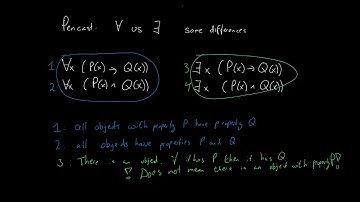 Pencast: ∀ vs ∃ some differences
1 ∀x (P(x) → Q(x))
2 ∀x (P(x) ∧ Q(x))
3 ∃x (P(x) → Q(x))
4 ∃x (P(x) ∧ Q(x))
1: all objects with property P have property Q
2: all objects have properties P and Q
3: There is an object, if it has P then it has Q
! Does not mean there is an object with property P!